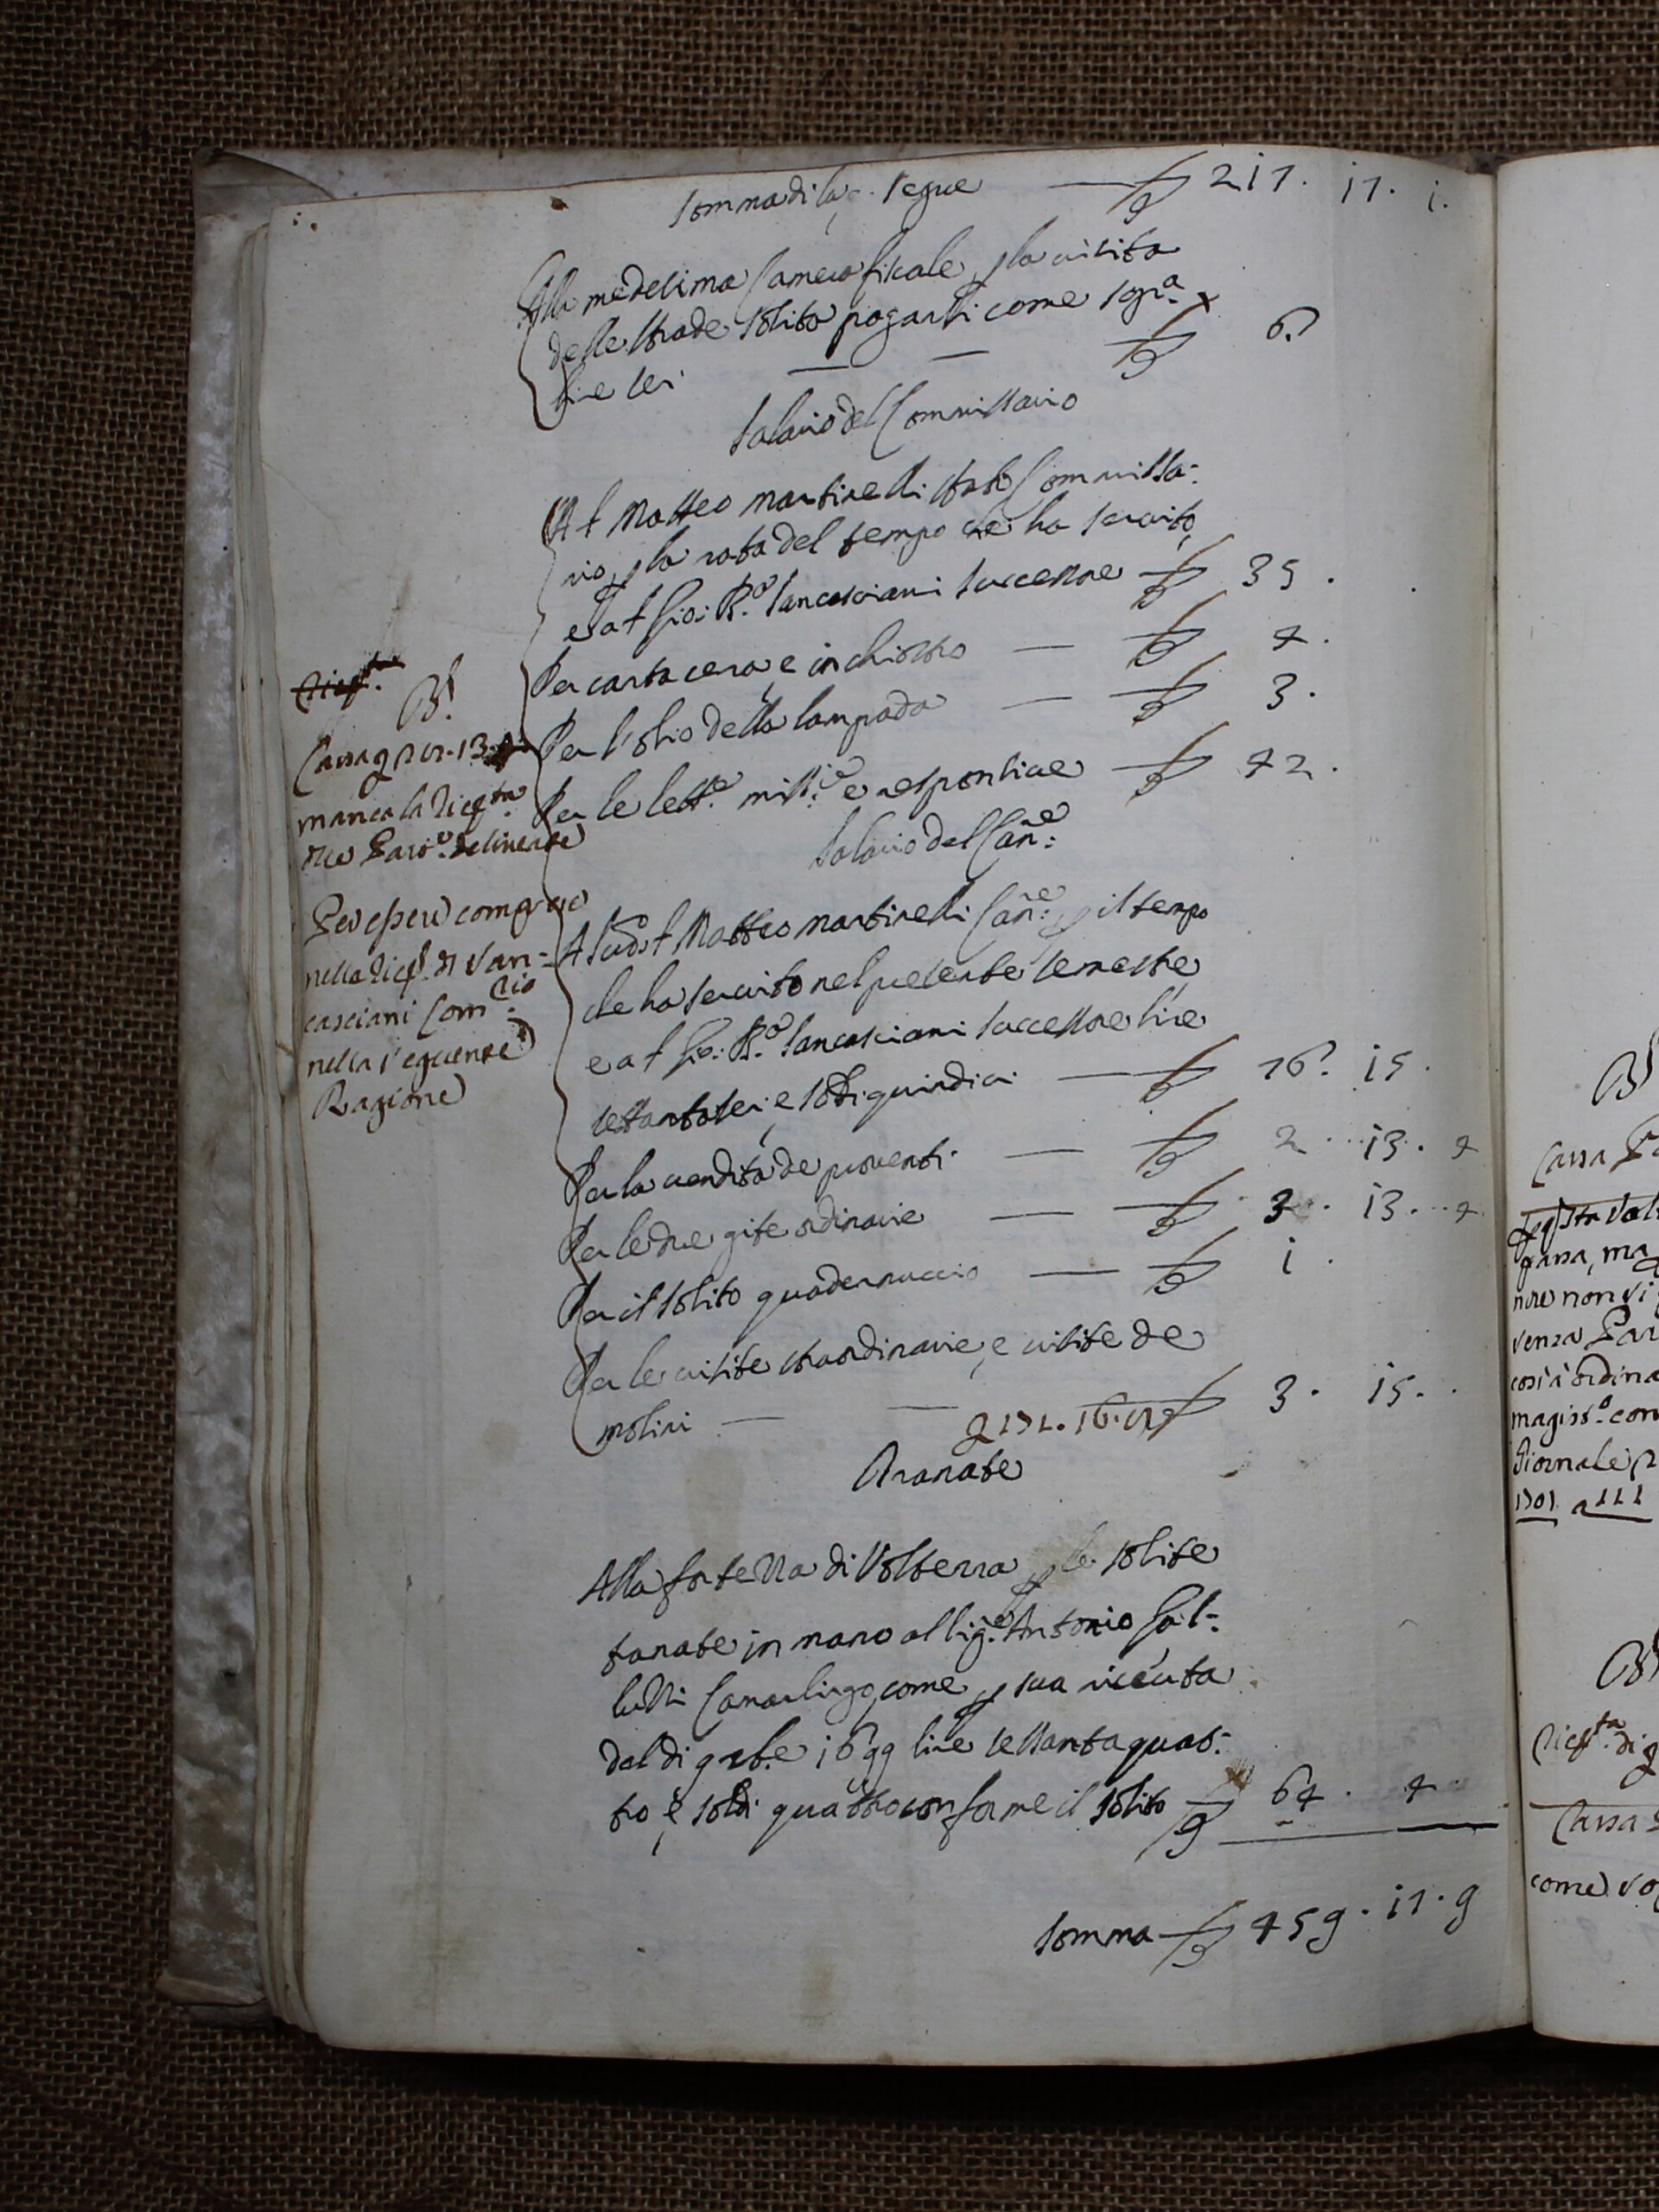 Somma di là e segue — £ 217. 17. 1.
Alla medesima Camera fiscale p la visita
delle strade solito pagarsi come sopra
lire sei — — £ 6.
Salario del Commissario
A S Matteo Martinelli stato Commissa=
rio, p la rata del tempo che ha servito,
e a S Gio: Bo. Sancasciani successore £ 35.
Per carta cera, e inchiostro — £ 4.
Per l'olio della lampada — £ 3.
Per le lette. missie. e responsive £ 42.
Salario del Canre:
A sudo. S Matteo Martinelli Canre: p il tempo
che ha servito nel presente semestre,
e a S Gio: Bo. Sancasciani successore lire
settantasei, e soldi quindici — £ 76. 15.
Per la vendita de proventi — £ 2. 13. 4
Per le due gite ordinarie — £ 3. 13. 4
Per il solito quadernuccio — £ 1.
Per le visite straordinarie, e visite de
molini — — £ 3. 15.
Tanate
Alla fortezza di Volterra p le solite
tanate in mano al Sigre. Antonio Gal=
luzzi Camarlingo, come p sua riceuta
del di 9 1699 lire settantaquat=
tro, e soldi quattro conforme il solito £ 64. 4
Somma £ 459. 17. 9
manca la Ricta.
nella Ricta. di San=
casciani Comrio.
nella seguente
Ragione
Cassa
passa, ma
nire non vi
senza Par
così à ordina
magisto. con
Giornale
1701 a 111
Ricta. di
Cassa
come so